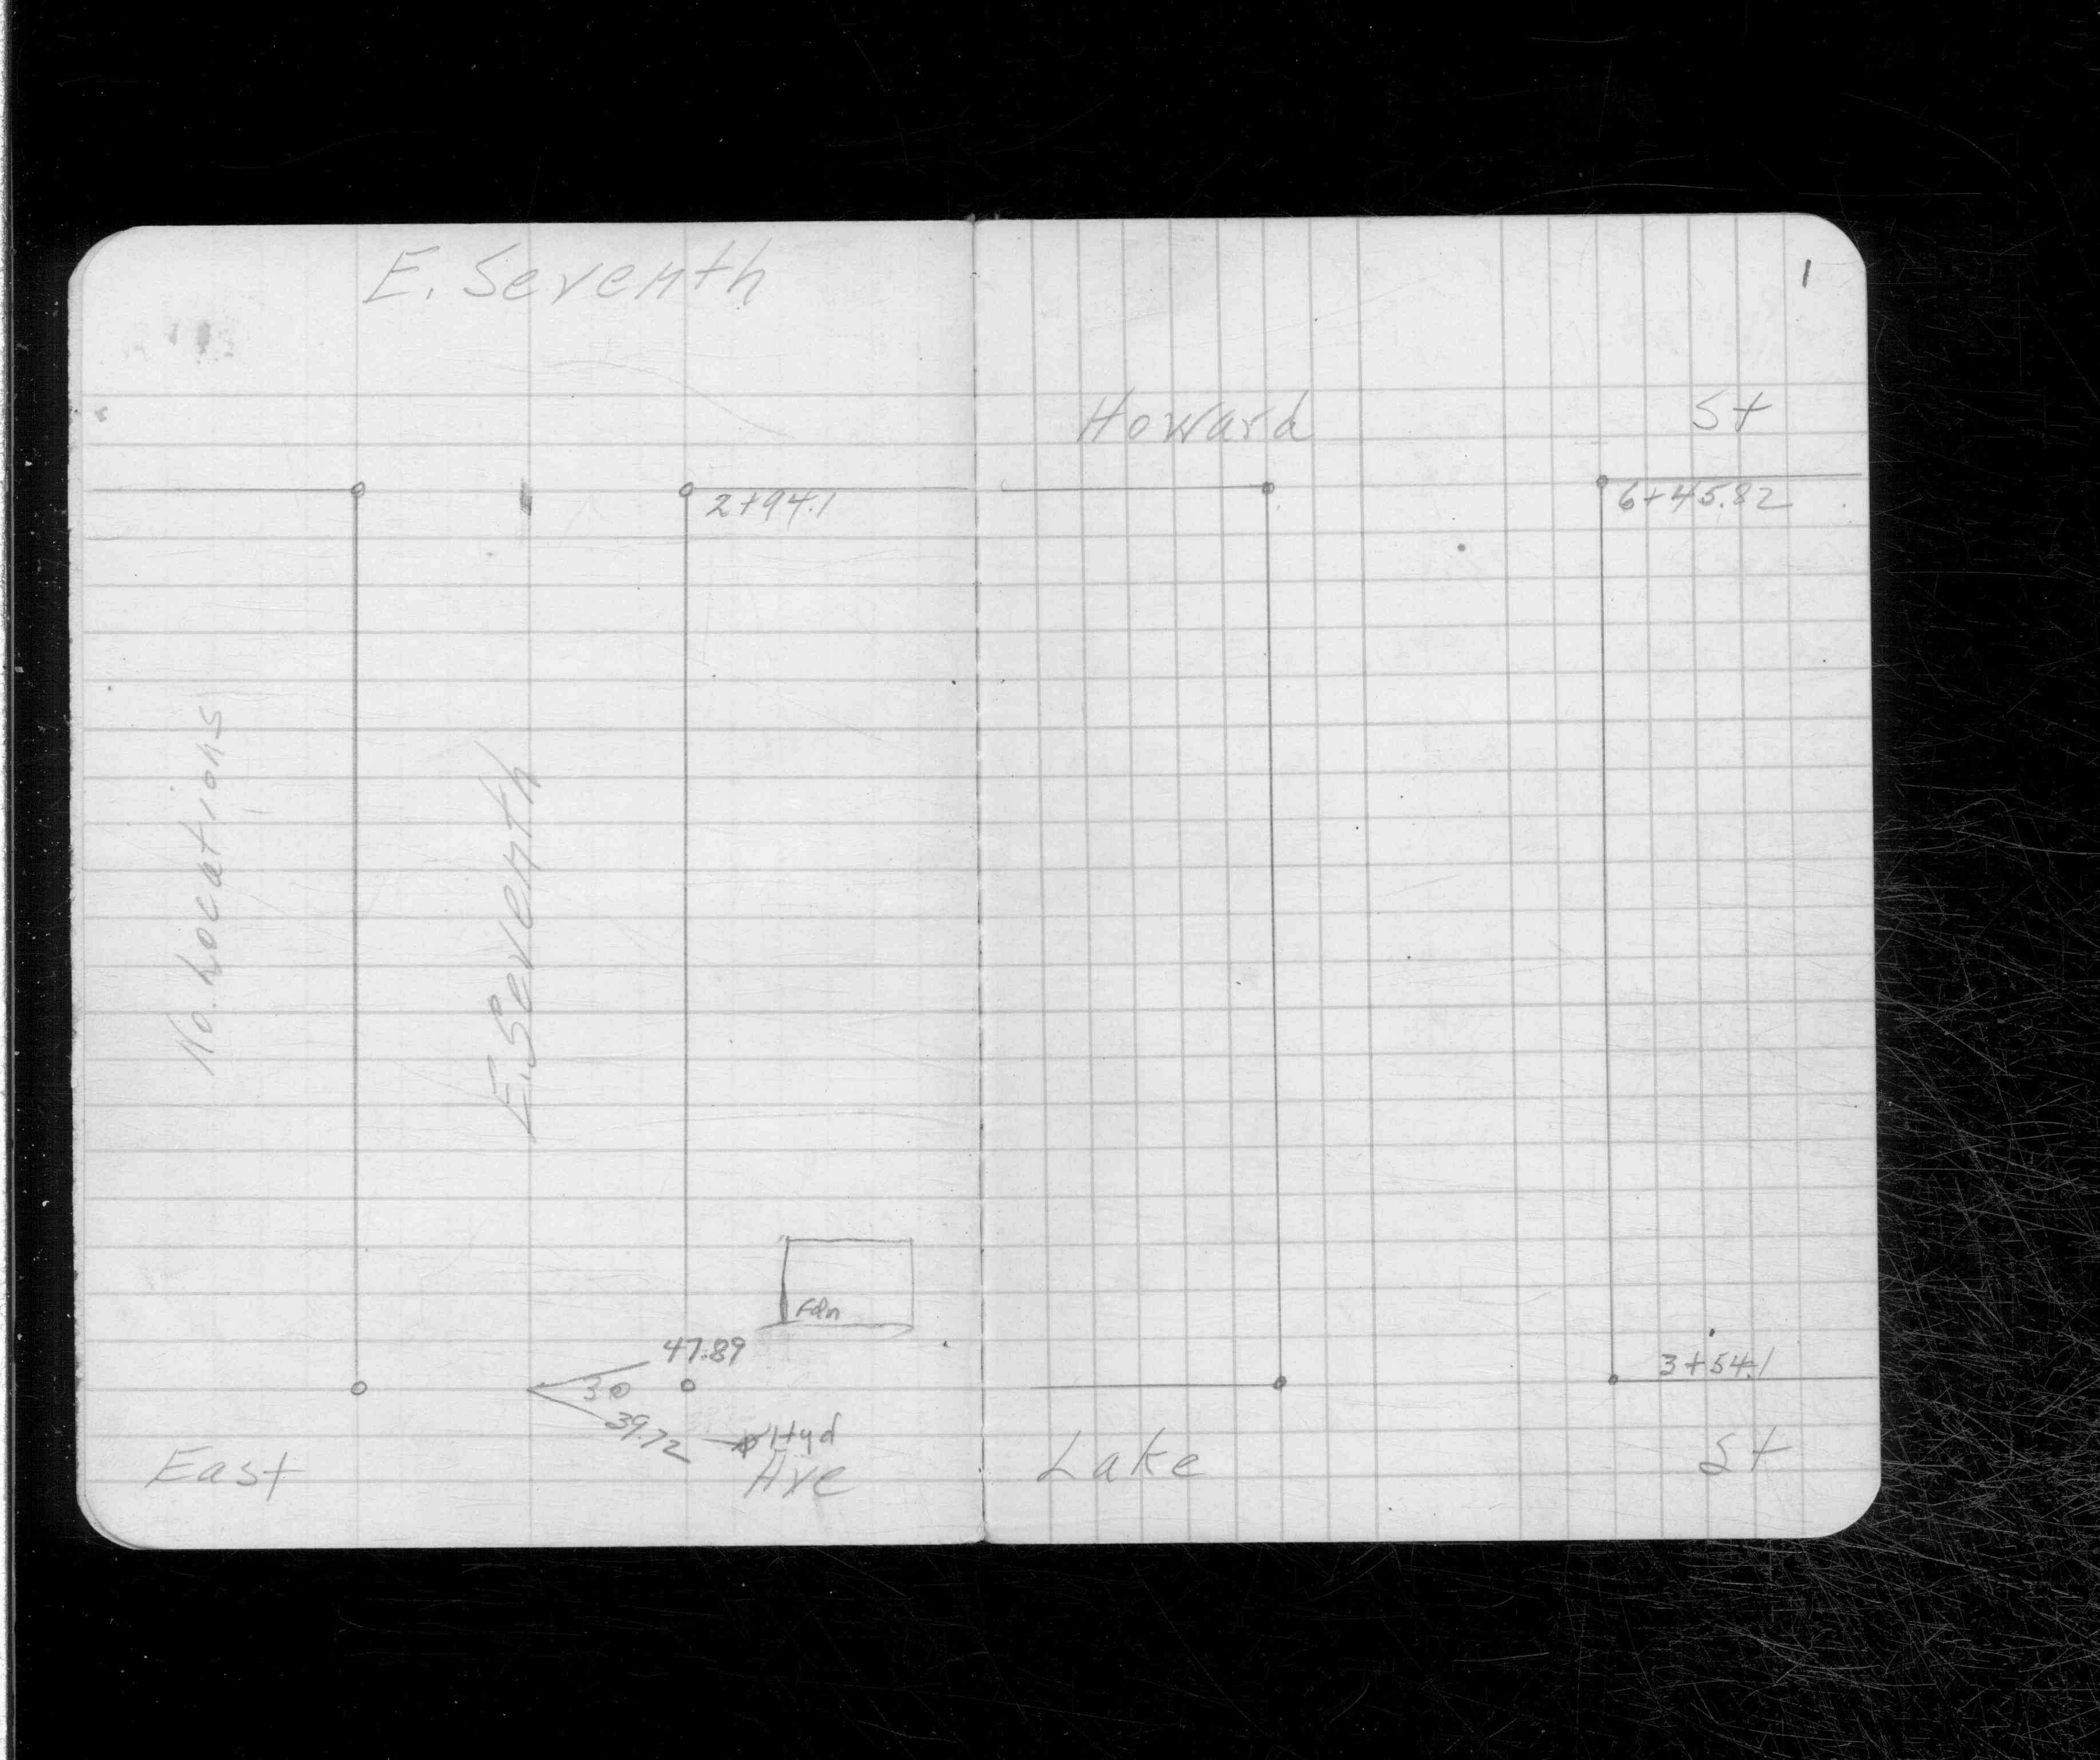 E. Seventh
1
Howard St
2+94.1
6+45.82
No. Locations
E. Seventh
Fdn
47.89
30
39.72
Hyd
3+54.1
East Ave
Lake St